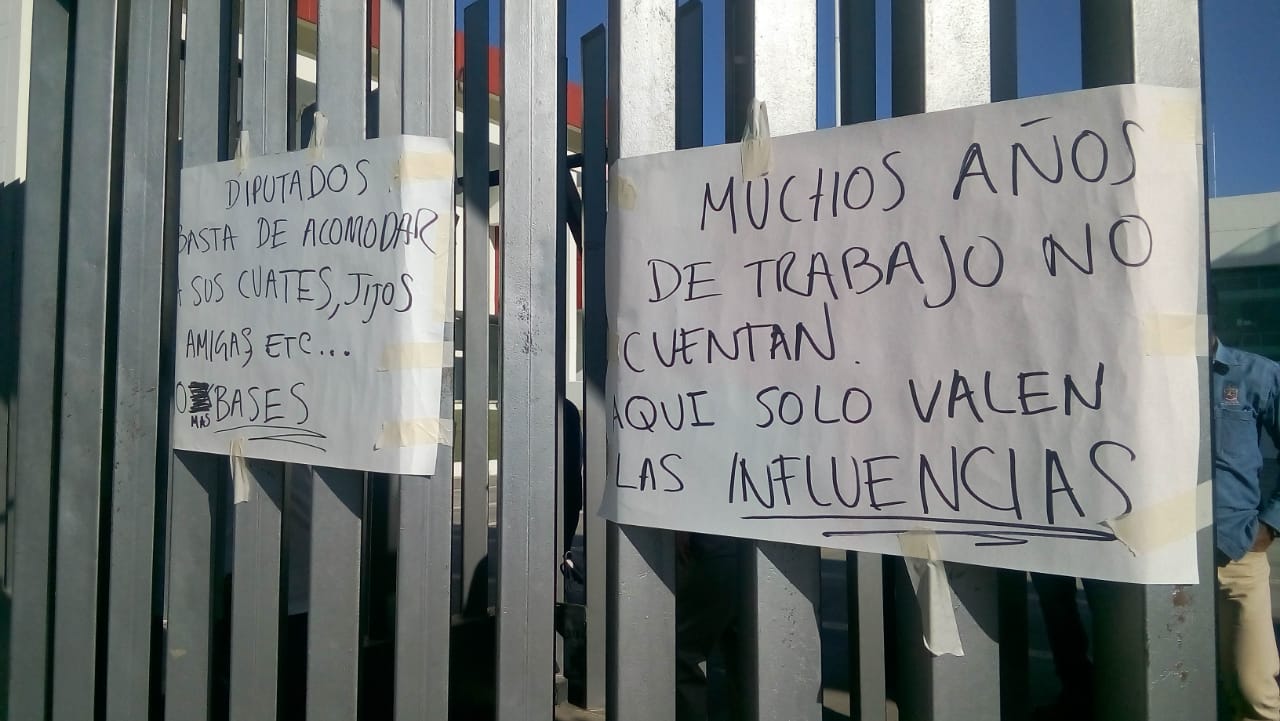 DIPUTADOS
BASTA DE ACOMODAR
A SUS CUATES, JIJOS
AMIGAS, ETC...
NO MAS BASES
MUCHOS AÑOS
DE TRABAJO NO
CUENTAN.
AQUI SOLO VALEN
LAS INFLUENCIAS